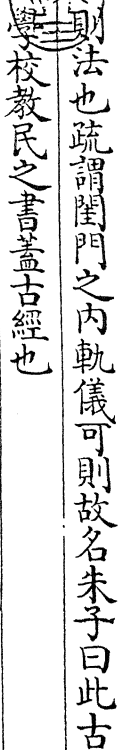 則法也疏謂閨門之内軌儀可則故名朱子曰此古
學校教民之書蓋古經也